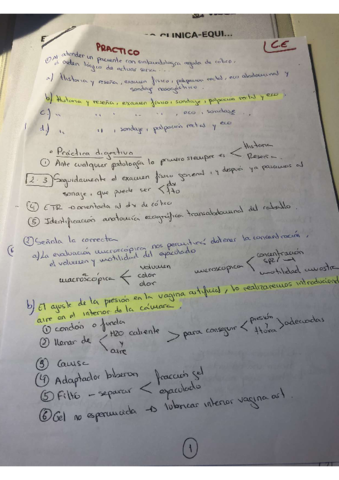 CLINICA-EQUI...
PRACTICO
CE
① Al atender un paciente con sintomatología aguda de cólico,
el orden lógico de actuar sería
a) Historia y reseña, examen físico, palpación rectal, eco abdominal y
sondaje nasogástrico
b) Historia y reseña, examen físico, sondaje, palpación rectal y eco
c) " " " , eco, sondaje
d) " " , sondaje, palpación rectal y eco
• Práctica digestivo
① Ante cualquier patología lo primero siempre es < Historia
Reseña
2-3 Seguidamente el examen físico general, y después ya pasamos al
sondaje, que puede ser < dx
tto
④ ETR - orientada al dx de cólico
⑤ Identificación anatomía ecográfica transabdominal del caballo
② Señala la correcta
a) La evaluación macroscópica nos permitirá obtener la concentración,
el volumen y motilidad del eyaculado
macroscópica < volumen
color
olor
microscópica < concentración
motilidad
b) El ajuste de la presión en la vagina artificial, lo realizaremos introduciendo
aire en el interior de la columna
① condón o funda
② llenar de < H2O caliente
y
aire > para conseguir < presión
y
Tª > adecuadas
③ Camisa
④ Adaptador biberón
⑤ Filtro - separar < fracción gel
eyaculado
⑥ Gel no espermicida → lubricar interior vagina art
1